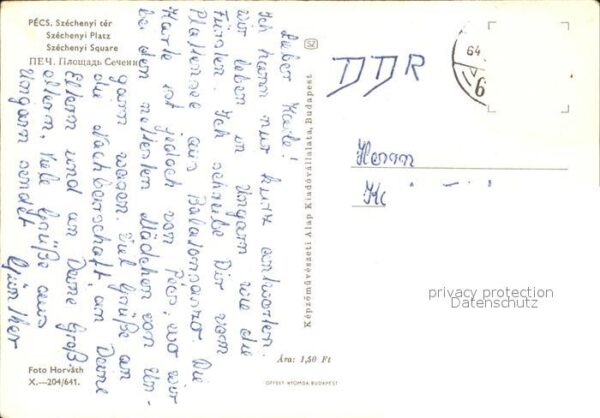 PÉCS. Széchenyi tér
Széchenyi Platz
Széchenyi Square
ПЕЧ. Площадь Сечени
Lieber Karle!
Ich kann nur kurz antworten.
Wir leben in Ungarn wie die
Fürsten. Ich schreibe Dir vom
Plattensee aus Balatonszárzo. Die
Karte ist jedoch von Pécs, wo wir
bei den nettesten Mädchen von Un-
garn waren. Viel Grüße an
die Nachbarschaft, an Deine
Eltern und an Deine Groß
eltern. Viele Grüße aus
Ungarn sendet
Günther
Foto Horváth
X.—204/641.
Ára: 1,50 Ft
OFFSET-NYOMDA BUDAPEST
Képzőművészeti Alap Kiadóvállalata, Budapest
SZ
DDR
64
6
Herrn
privacy protection
Datenschutz